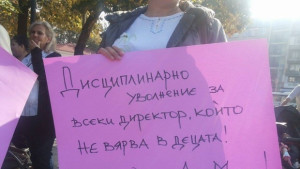 Дисциплинарно
уволнение за
всеки директор, който
не вярва в децата!